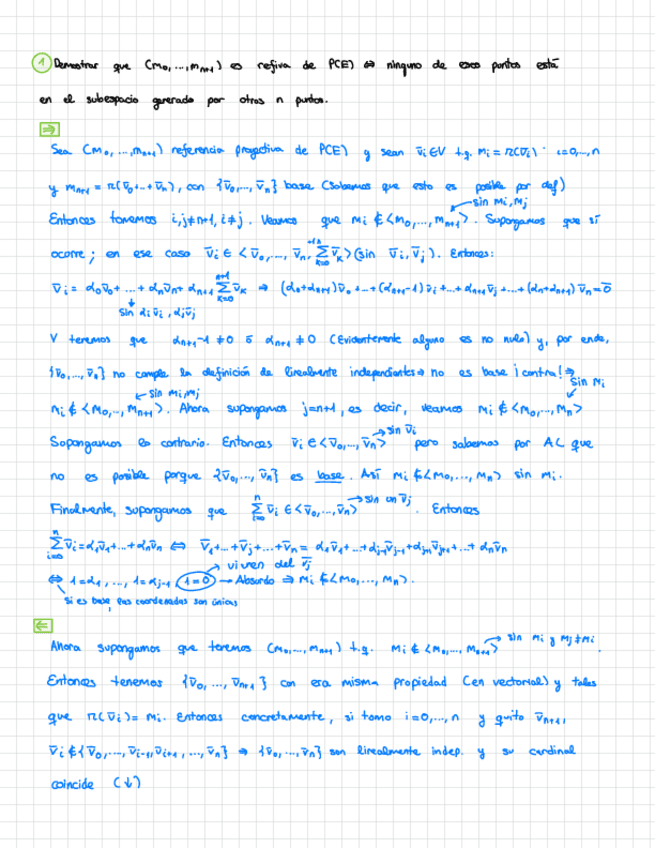 ① Demostrar que (m₀,...,mₙ₊₁) es refiva de P(E) ⇔ ninguno de esos puntos está
en el subespacio generado por otros n puntos.
⇒
Sea (m₀,...,mₙ₊₁) referencia proyectiva de P(E) y sean v̄ᵢ∈V t.q. mᵢ = π(v̄ᵢ) i=0,...,n
y mₙ₊₁ = π(v̄₀+...+v̄ₙ), con {v̄₀,...,v̄ₙ} base (Sabemos que esto es posible por def)
Entonces tomemos i,j≠n+1, i≠j. Veamos que mᵢ ∉ <m₀,...,mₙ₊₁>. Supongamos que sí
sin mᵢ,mⱼ
ocurre; en ese caso v̄ᵢ ∈ <v̄₀,...,v̄ₙ, Σₖ₌₀ⁿ⁺¹ v̄ₖ> (sin v̄ᵢ,v̄ⱼ). Entonces:
v̄ᵢ = α₀v̄₀+...+αₙv̄ₙ+αₙ₊₁ Σₖ₌₀ⁿ⁺¹ v̄ₖ ⇒ (α₀+αₙ₊₁)v̄₀+...+(αₙ₊₁-1)v̄ᵢ+...+αₙ₊₁v̄ⱼ+...+(αₙ+αₙ₊₁)v̄ₙ=0̄
sin αᵢv̄ᵢ, αⱼv̄ⱼ
Y tenemos que αₙ₊₁-1 ≠0 ó αₙ₊₁ ≠0 (Evidentemente alguno es no nulo) y, por ende,
{v̄₀,...,v̄ₙ} no cumple la definición de linealmente independientes ⇒ no es base ¡contra! ⇒
sin mᵢ,mⱼ
sin mᵢ
mᵢ ∉ <m₀,...,mₙ₊₁>. Ahora supongamos j=n+1, es decir, veamos mᵢ ∉ <m₀,...,mₙ>
Supongamos lo contrario. Entonces v̄ᵢ ∈ <v̄₀,...,v̄ₙ> → sin v̄ᵢ pero sabemos por AL que
no es posible porque {v̄₀,...,v̄ₙ} es base. Así mᵢ ∉ <m₀,...,mₙ> sin mᵢ.
Finalmente, supongamos que Σᵢ₌₀ⁿ v̄ᵢ ∈ <v̄₀,...,v̄ₙ> → sin un v̄ⱼ. Entonces
Σᵢ₌₀ⁿ v̄ᵢ = α₁v̄₁+...+αₙv̄ₙ ⇔ v̄₁+...+v̄ⱼ+...+v̄ₙ = α₁v̄₁+...+αⱼ₋₁v̄ⱼ₋₁+αⱼ₊₁v̄ⱼ₊₁+...+αₙv̄ₙ
⇔ 1=α₁,..., 1=αⱼ₋₁, 1=0 → Absurdo ⇒ mᵢ ∉ <m₀,...,mₙ>.
viven del v̄ⱼ
si es base, las coordenadas son únicas
⇐
Ahora supongamos que tenemos (m₀,...,mₙ₊₁) t.q. mᵢ ∉ <m₀,...,mₙ₊₁> → sin mᵢ y mⱼ≠mᵢ.
Entonces tenemos {v̄₀,...,v̄ₙ₊₁} con esa misma propiedad (en vectorial) y tales
que π(v̄ᵢ) = mᵢ. Entonces concretamente, si tomo i=0,...,n y quito v̄ₙ₊₁,
v̄ᵢ ∉ {v̄₀,...,v̄ᵢ₋₁,v̄ᵢ₊₁,...,v̄ₙ} ⇒ {v̄₀,...,v̄ₙ} son linealmente indep. y su cardinal
coincide (↓)